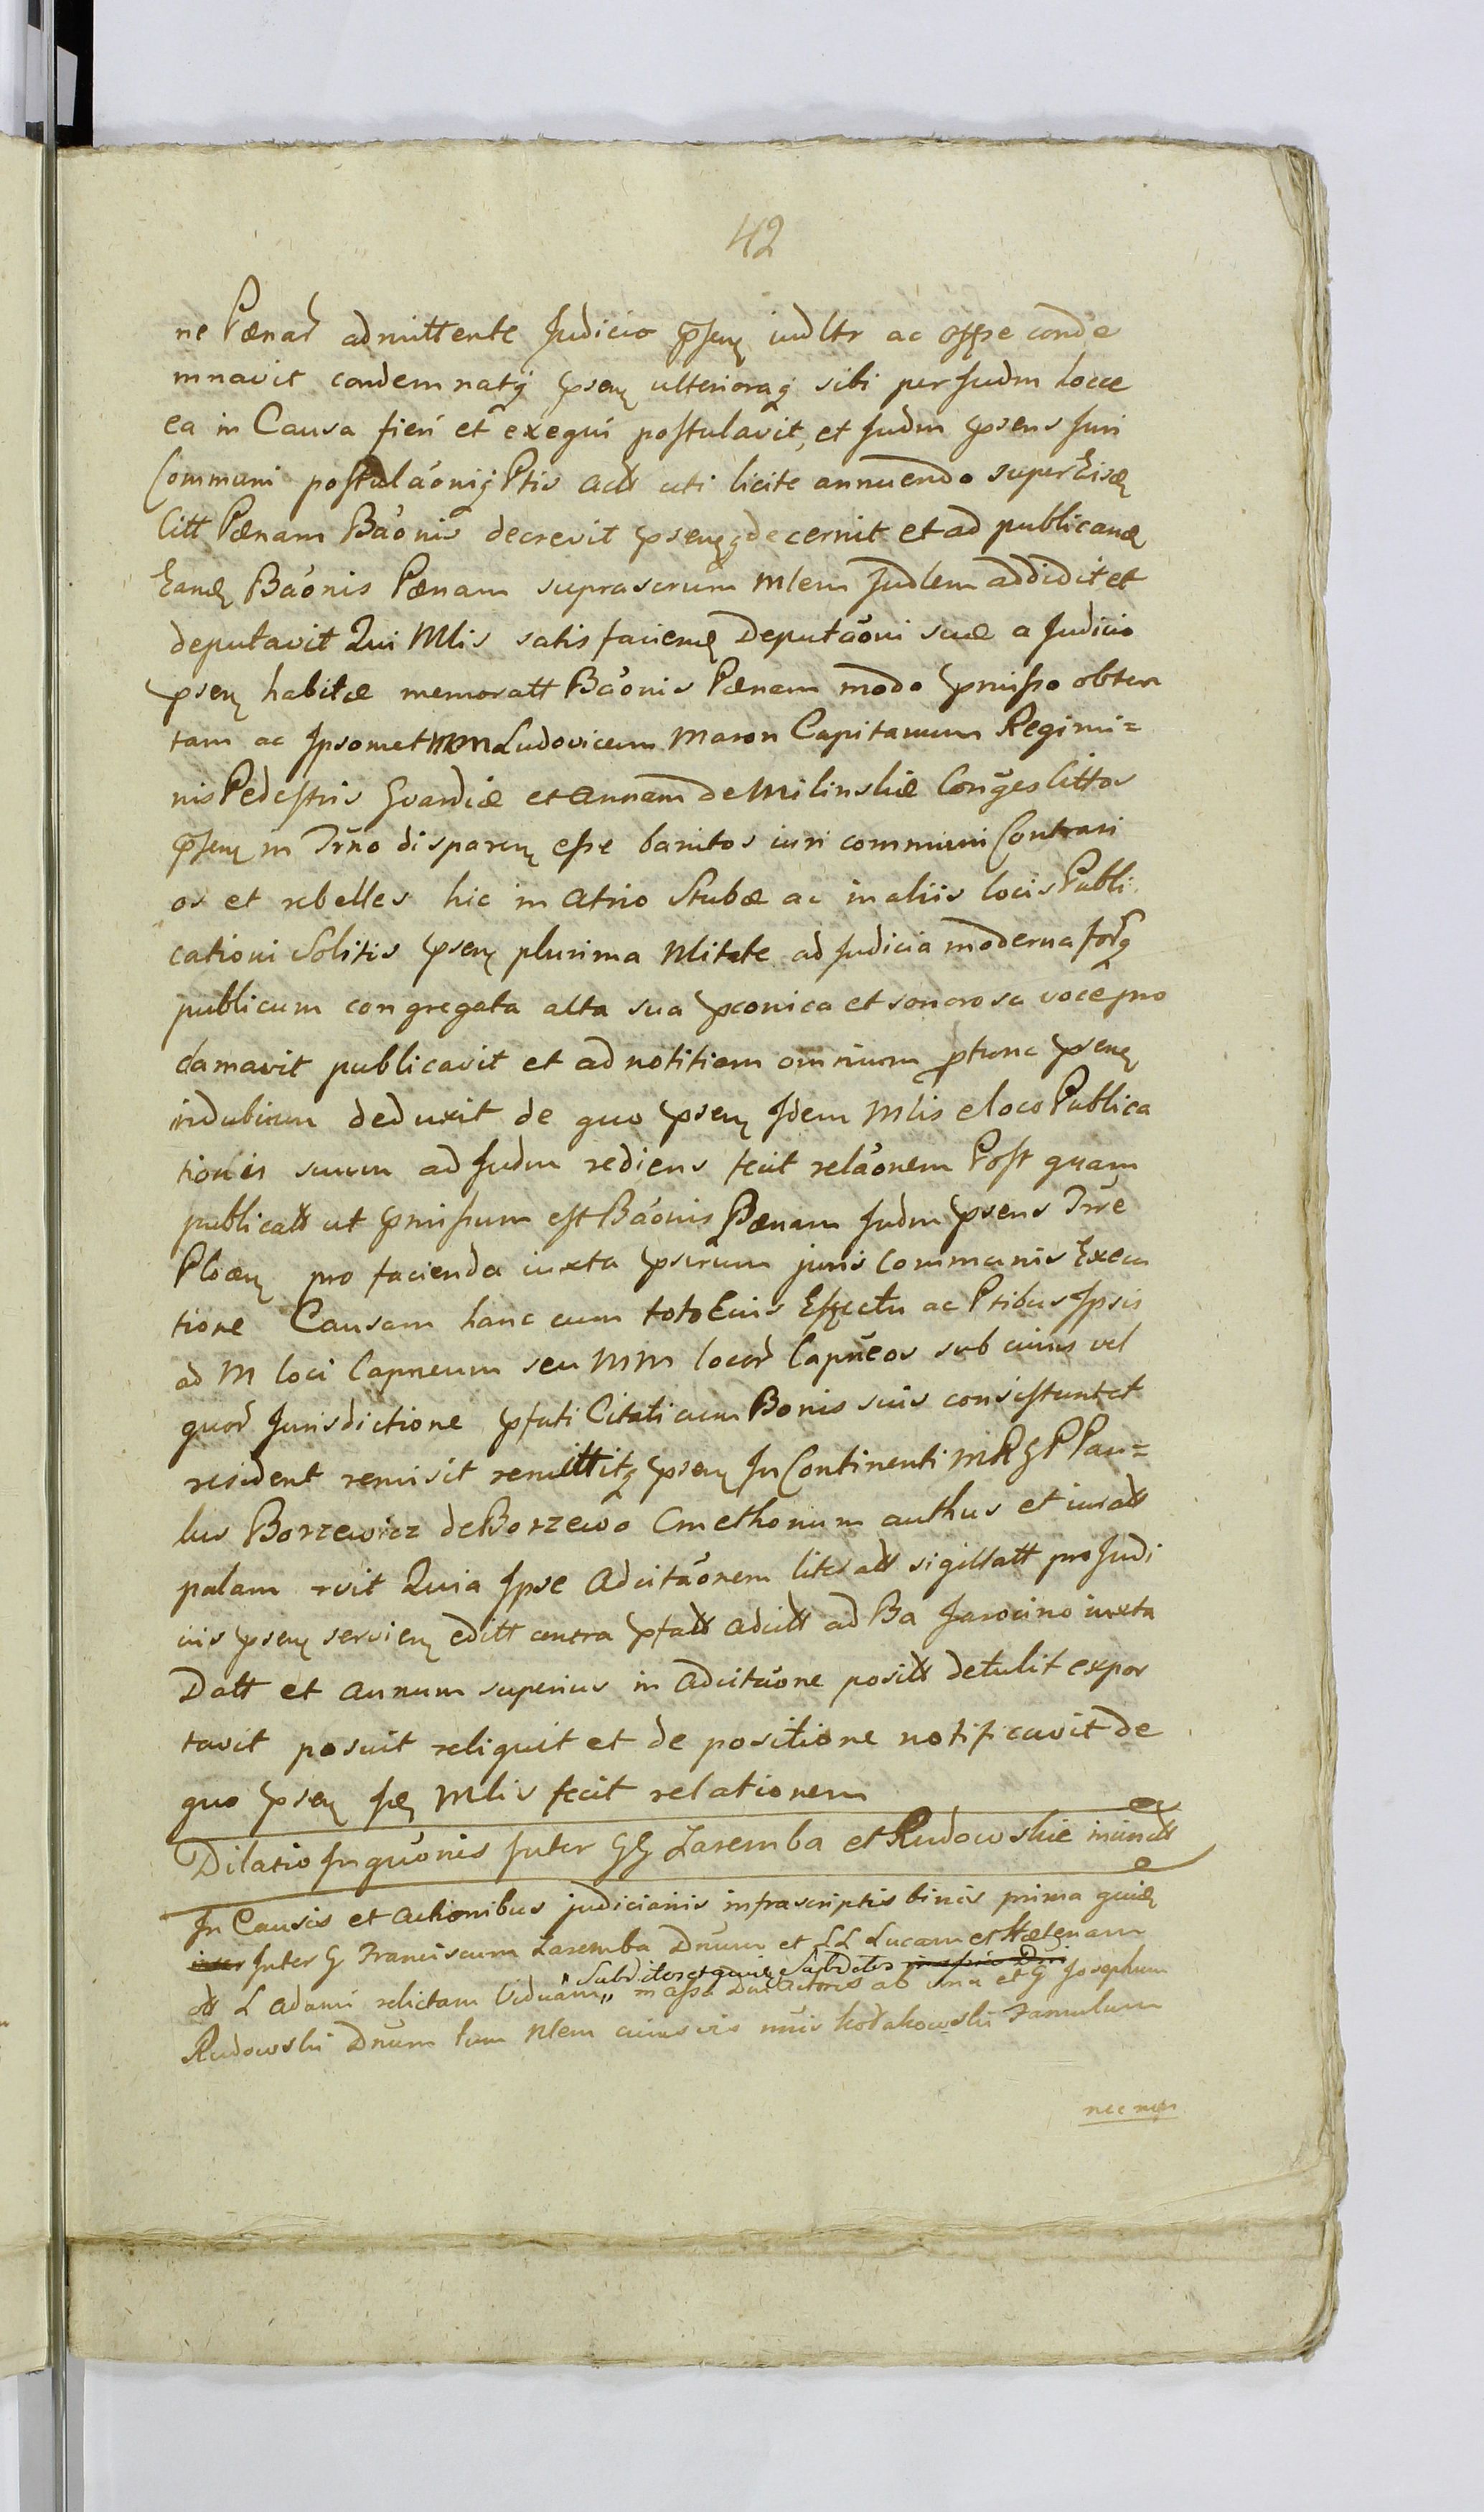 42
ne Pænar admittente Judicio p̄sen iudltr ac offse conde
mnavit condemnatq psen ulterioraq sibi per Judm hocce
ea in Causa fieri et exequi postulavit, et Judm psens Juri
Communi postulaōniq Ptis actt uti licite annuendo super Eisd
Citt Pænam Baōnis decrevit psenq decernit et ad publicand
Eand Baōnis Pænam suprascrum Mlem Judlem addidit et
deputavit Qui Mlis satisfaciend Deputaōni suæ a Judicio
psen habitæ memoratt Baōnis Pænam modo pmisso obten
tam ac Ipsomet MM Ludovicum Mason Capitaneum Regimi=
nis Pedestris Gvardiæ et Annam de Milinskie Conges Cittos
p̄sen in Trno disparen esse banitos iuri communi Contrari
os et rebelles hic in Atrio Stubæ ac in aliis locis Publi
cationi Solitis psen plurima Nlitate ad Judicia moderna forq
publicum congregata alta sua pconica et sonorosa voce pro
clamavit publicavit et ad notitiam omnium ptunc psen
indubiam deduxit de quo psen Idem Mlis e loco Publica
tionis suum ad Judm rediens fecit relaōnem Post quam
publicatt ut pmissum est Baōnis Pænam Judm psens Trre
Ploen pro facienda iuxta pscrum juris Communis Execu
tione Causam hanc cum toto Eius Effectu ac Ptibus Ipsis
ad M loci Capneum seu MM locor Capneos sub cuius vel
quor Jurisdictione pfati Citati cum Bonis suis consistunt et
resident remisit remittitq psen In Continenti MRGP Pau=
lus Borzewicz de Borzewo Cmethonum authus et iuratt
palam rvit Quia Ipse Adcitaōnem literatt sigillatt pro Judi
ciis psen servien editt contra pfatt adcitt ad Ba Jarocino iuxta
Datt et annum superius in Adcitaōne positt detulit expor
tavit posuit reliquit et de positione notificavit de
quo psen Id Mlis fecit relationem
Dilatio Inquōnis Inter GG Zaremba et Rudowskie inundtt
In Causis et Actionibus judiciariis infrascriptis binis prima quid
Inter G Franciscum Zaremba Dnum et LL Lucam et Hælenam
ott L Adami relictam Viduam „ Subditos Subditos ab una et G Josephum
Rudowski Dnum tum Nlem cuiusvis nnis Kodakowski Famulum
nec non